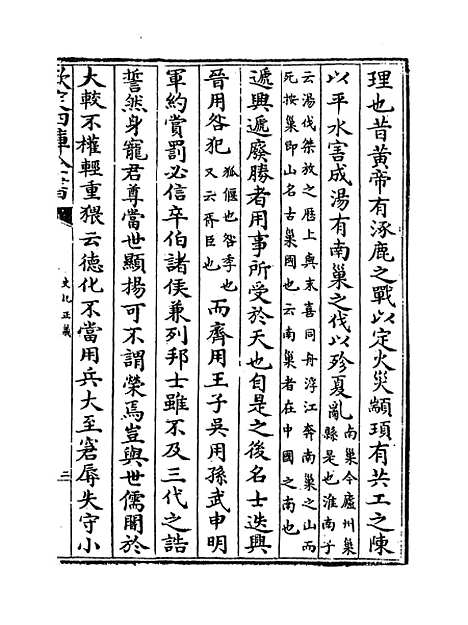 理也昔黄帝有涿鹿之戰以定火災顓頊有共工之陳
以平水害成湯有南巢之伐以殄夏亂南巢今廬州巢縣是也淮南子
云湯伐桀放之歷上與末喜同舟浮江奔南巢之山而
死按巢即山名古巢國也云南巢者在中國之南也
遞興遞廢勝者用事所受於天也自是之後名士迭興
晉用咎犯狐偃也咎季也又云胥臣也而齊用王子吳用孫武申明
軍約賞罰必信卒伯諸侯兼列邦士雖不及三代之誥
誓然身寵君尊當世顯揚可不謂榮焉豈與世儒闇於
大較不權輕重猥云德化不當用兵大至窘辱失守小
欽定四庫全書
史記正義
三